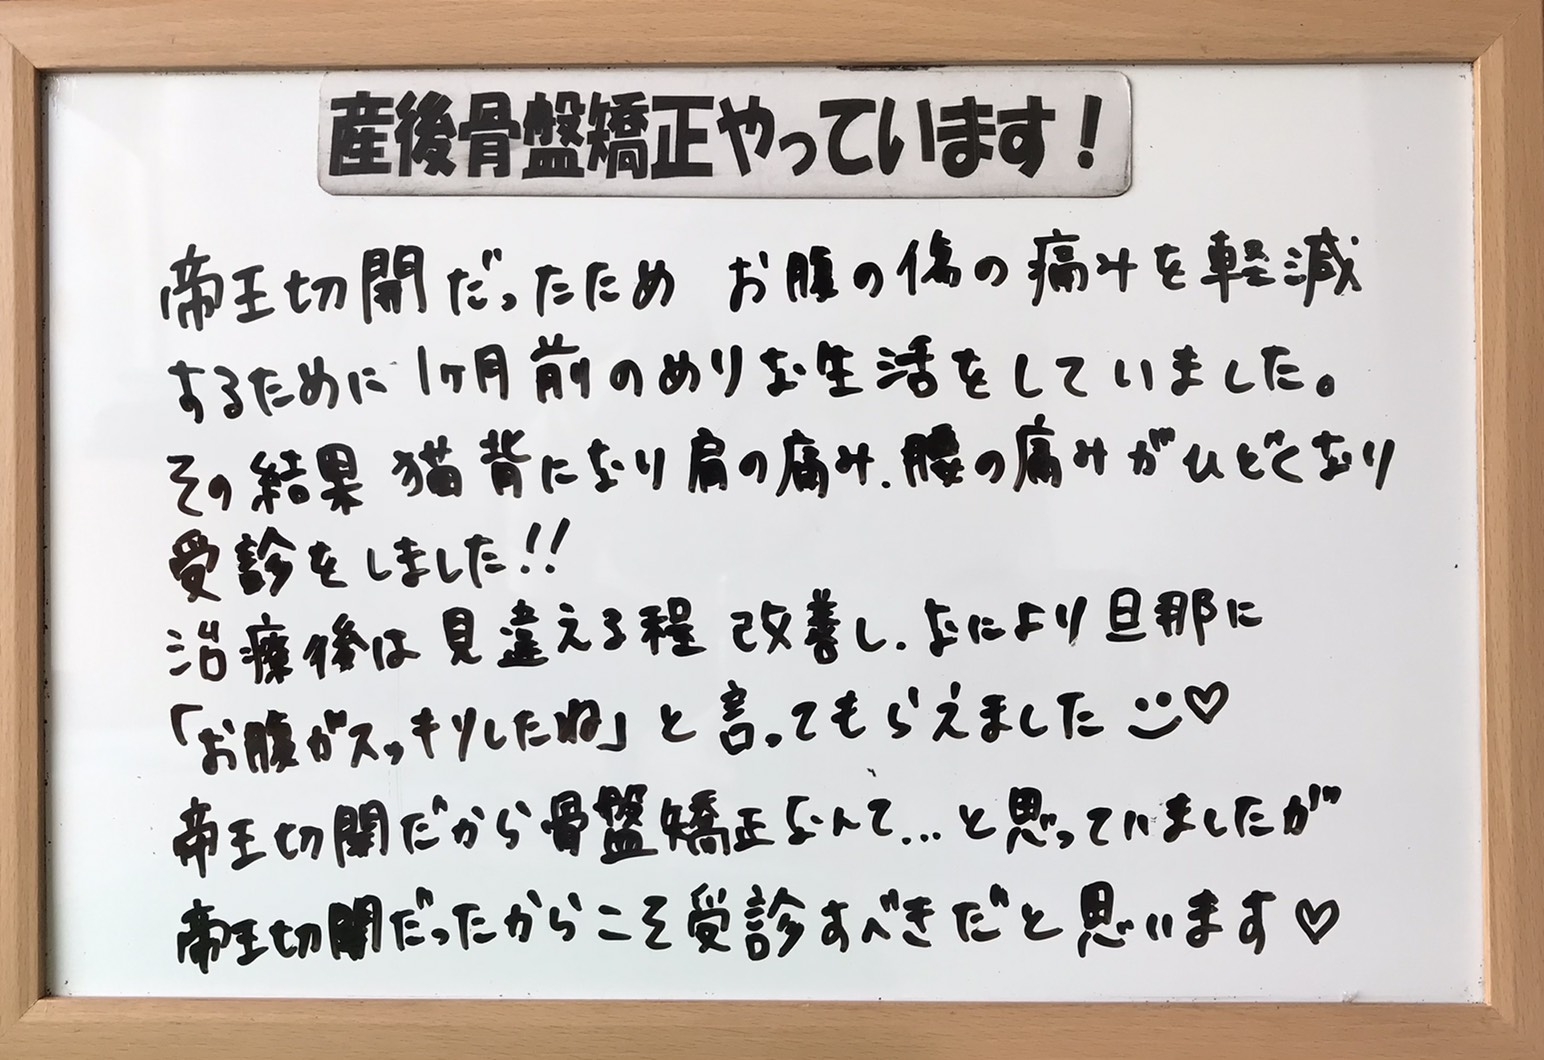 産後骨盤矯正やっています！
帝王切開だったため お腹の傷の痛みを軽減
するために 1ヶ月前のめりな生活をしていました。
その結果 猫背になり肩の痛み、腰の痛みがひどくなり
受診をしました!!
治療後は見違える程 改善し、なにより旦那に
「お腹がスッキリしたね」と言ってもらえました☺♡
帝王切開だから骨盤矯正なんて…と思っていましたが
帝王切開だったからこそ受診すべきだと思います♡